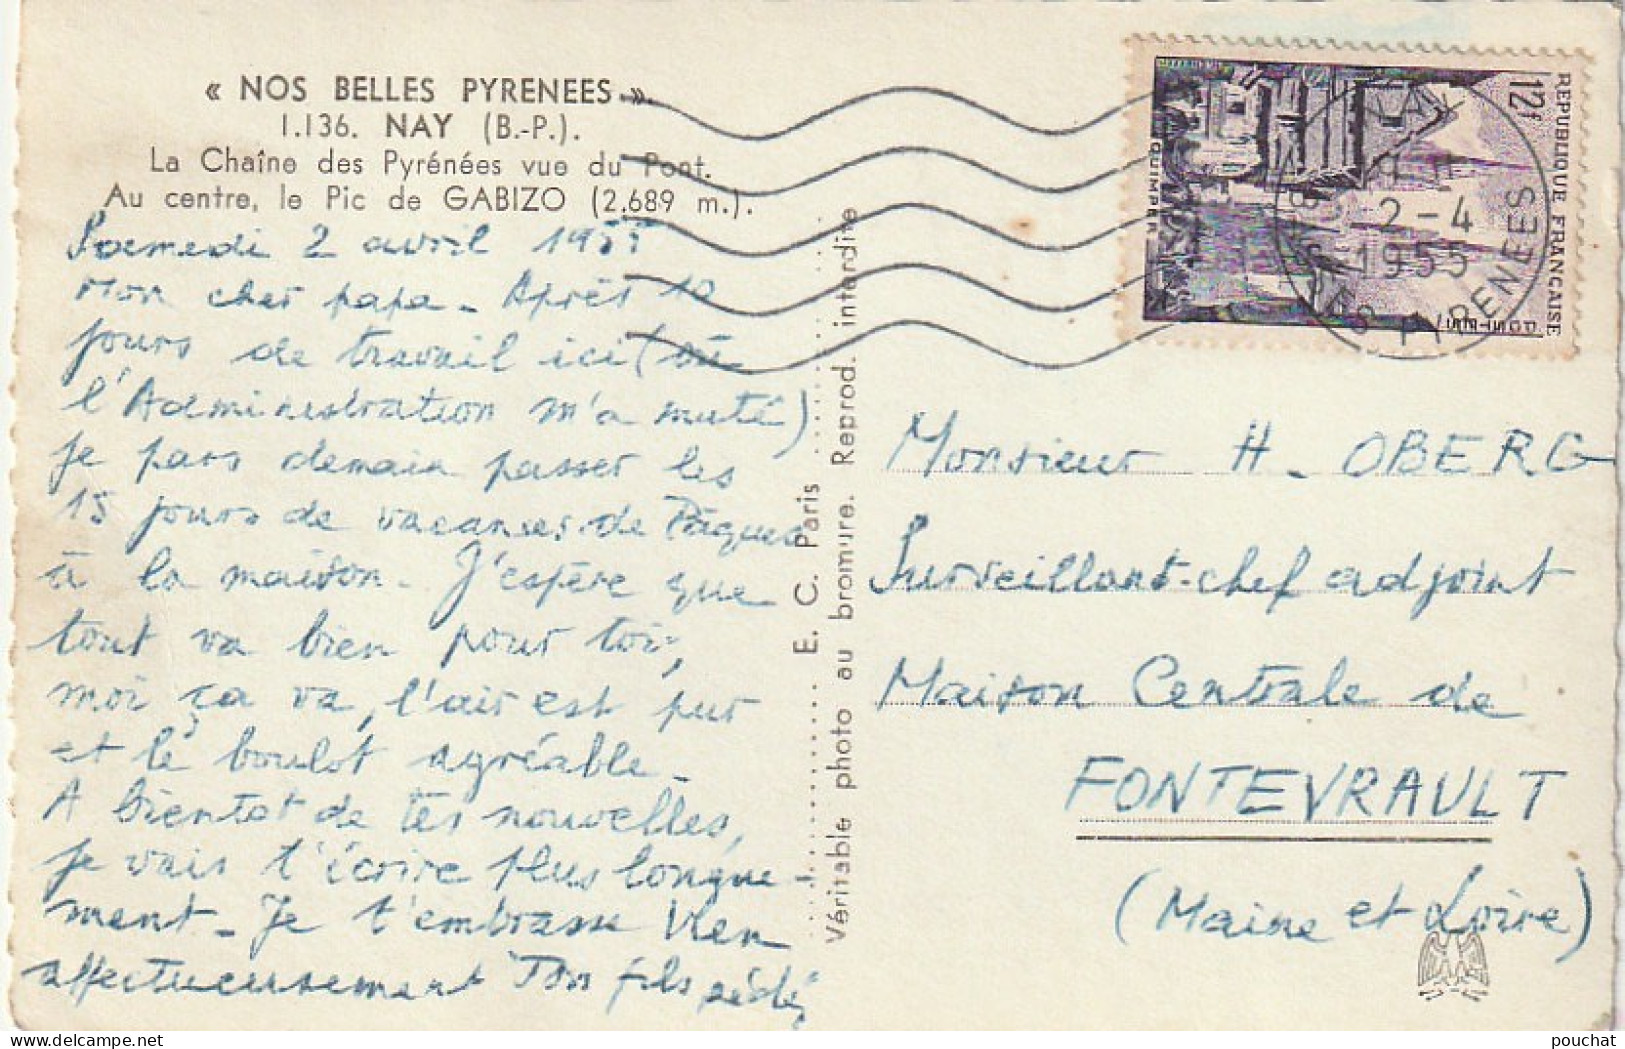 « NOS BELLES PYRENEES ».
1.136. NAY (B.-P.).
La Chaîne des Pyrénées vue du Pont.
Au centre, le Pic de GABIZO (2.689 m.).
Samedi 2 avril 1955
Mon cher papa - Après 10
jours de travail ici (où
l'Administration m'a muté)
je pars demain passer les
15 jours de vacances de Pâques
à la maison - J'espère que
tout va bien pour toi,
moi ça va, l'air est pur
et le boulot agréable -
A bientot de tes nouvelles,
je vais t'écrire plus longue-
ment - Je t'embrasse bien
affectueusement Ton fils
E. C. Paris
Véritable photo au bromure. Reprod. interdite
REPUBLIQUE FRANÇAISE
12f
QUIMPER
NAY
2-4
1955
BSES PYRENEES
Monsieur H. OBERG
Surveillant-chef adjoint
Maison Centrale de
FONTEVRAULT
(Maine et Loire)
pouchat